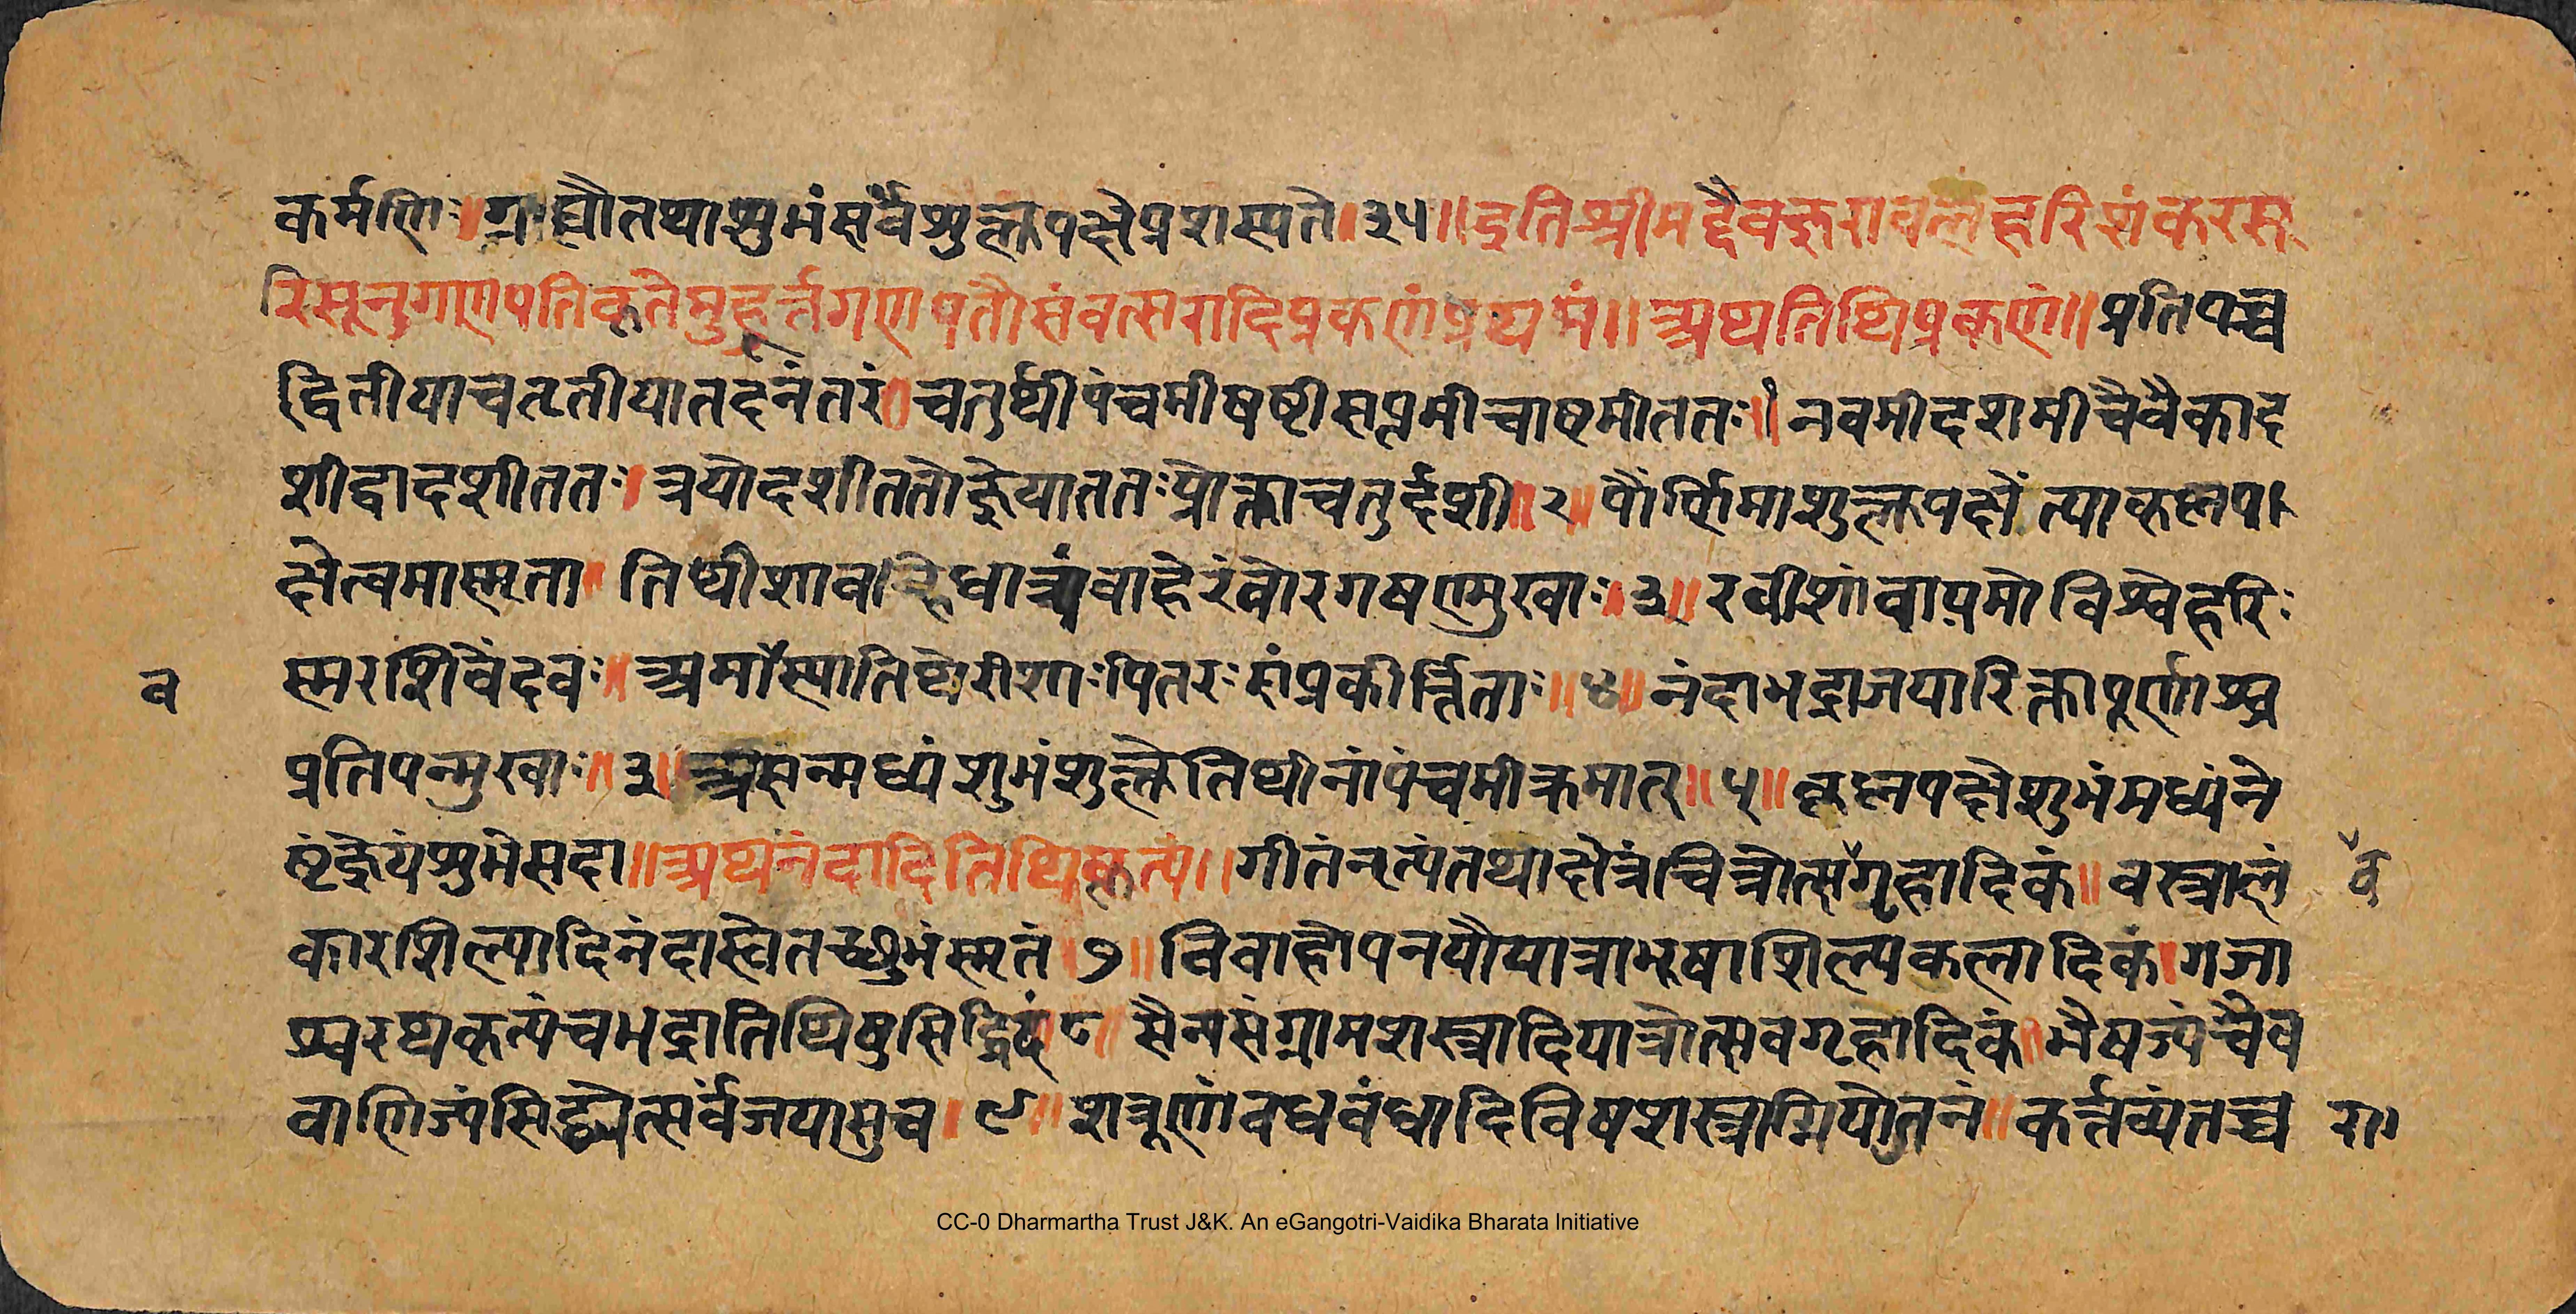 कर्मणिः॥ग्राह्यौतथाशुभंसर्वंशुक्लपक्षेप्रशस्यते॥३५॥॥इतिश्रीमद्दैवज्ञरावलहरिशंकरसू
रिसूनुगणपतिकृतेमुहूर्त्तगणपतौसंवत्सरादिप्रकर्णंप्रथमं॥॥अथतिथिप्रकर्णं॥॥प्रतिपच्च
द्वितीयाचतृतीयातदनंतरं॥चतुर्थीपंचमीषष्टीसप्तमीचाष्टमीततः॥१नवमीदशमीचैवैकाद
शीद्वादशीततः।त्रयोदशीततोज्ञेयाततःप्रोक्ताचतुर्दशी॥२॥पौर्णिमाशुक्लपक्षेंत्याकृष्णप।
क्षेत्वमास्मृता॥तिथीशावह्निधात्र्यंबाहेरंबोरगषण्मुखाः॥३॥रवीशांबायमोविश्वेहरिः
व स्मरशिवेंदवः॥अमा˅स्यातिथेरीशाःपितरःसंप्रकीर्त्तिताः॥४॥नंदाभद्राजयारिक्तापूर्णाश्च
प्रतिपन्मुखाः॥३॥असन्मध्यंशुभंशुक्लेतिथीनांपंचमीक्रमात्॥५॥कृष्णपक्षेशुभंमध्यंने
ष्टंज्ञेयंशुभेसदा॥॥अथनंदादितिथिकृत्यं॥॥गीतंनृत्यंतथाक्षेत्रंचित्रोत्स˅गृहादिकं॥वस्त्रालं ˅व
कारशिल्पादिनंदास्वेतच्छुभंस्मृतं॥७॥विवाहोपनयौयात्राभूषाशिल्पकलादिकं।गजा
श्वरथकृत्यंचभद्रातिथिषुसिद्धिदं॥८॥सैन्यसंग्रामशस्त्रादियात्रोत्सवगृहादिकं॥भैषज्यंचैव
वाणिज्यंसिद्ध्येत्सर्वंजयासुच॥९॥शत्रूणांवधबंधादिविषशस्त्राग्नियोतनं॥कर्त्तव्यंतच्च रा॰
CC-0 Dharmartha Trust J&K. An eGangotri-Vaidika Bharata Initiative